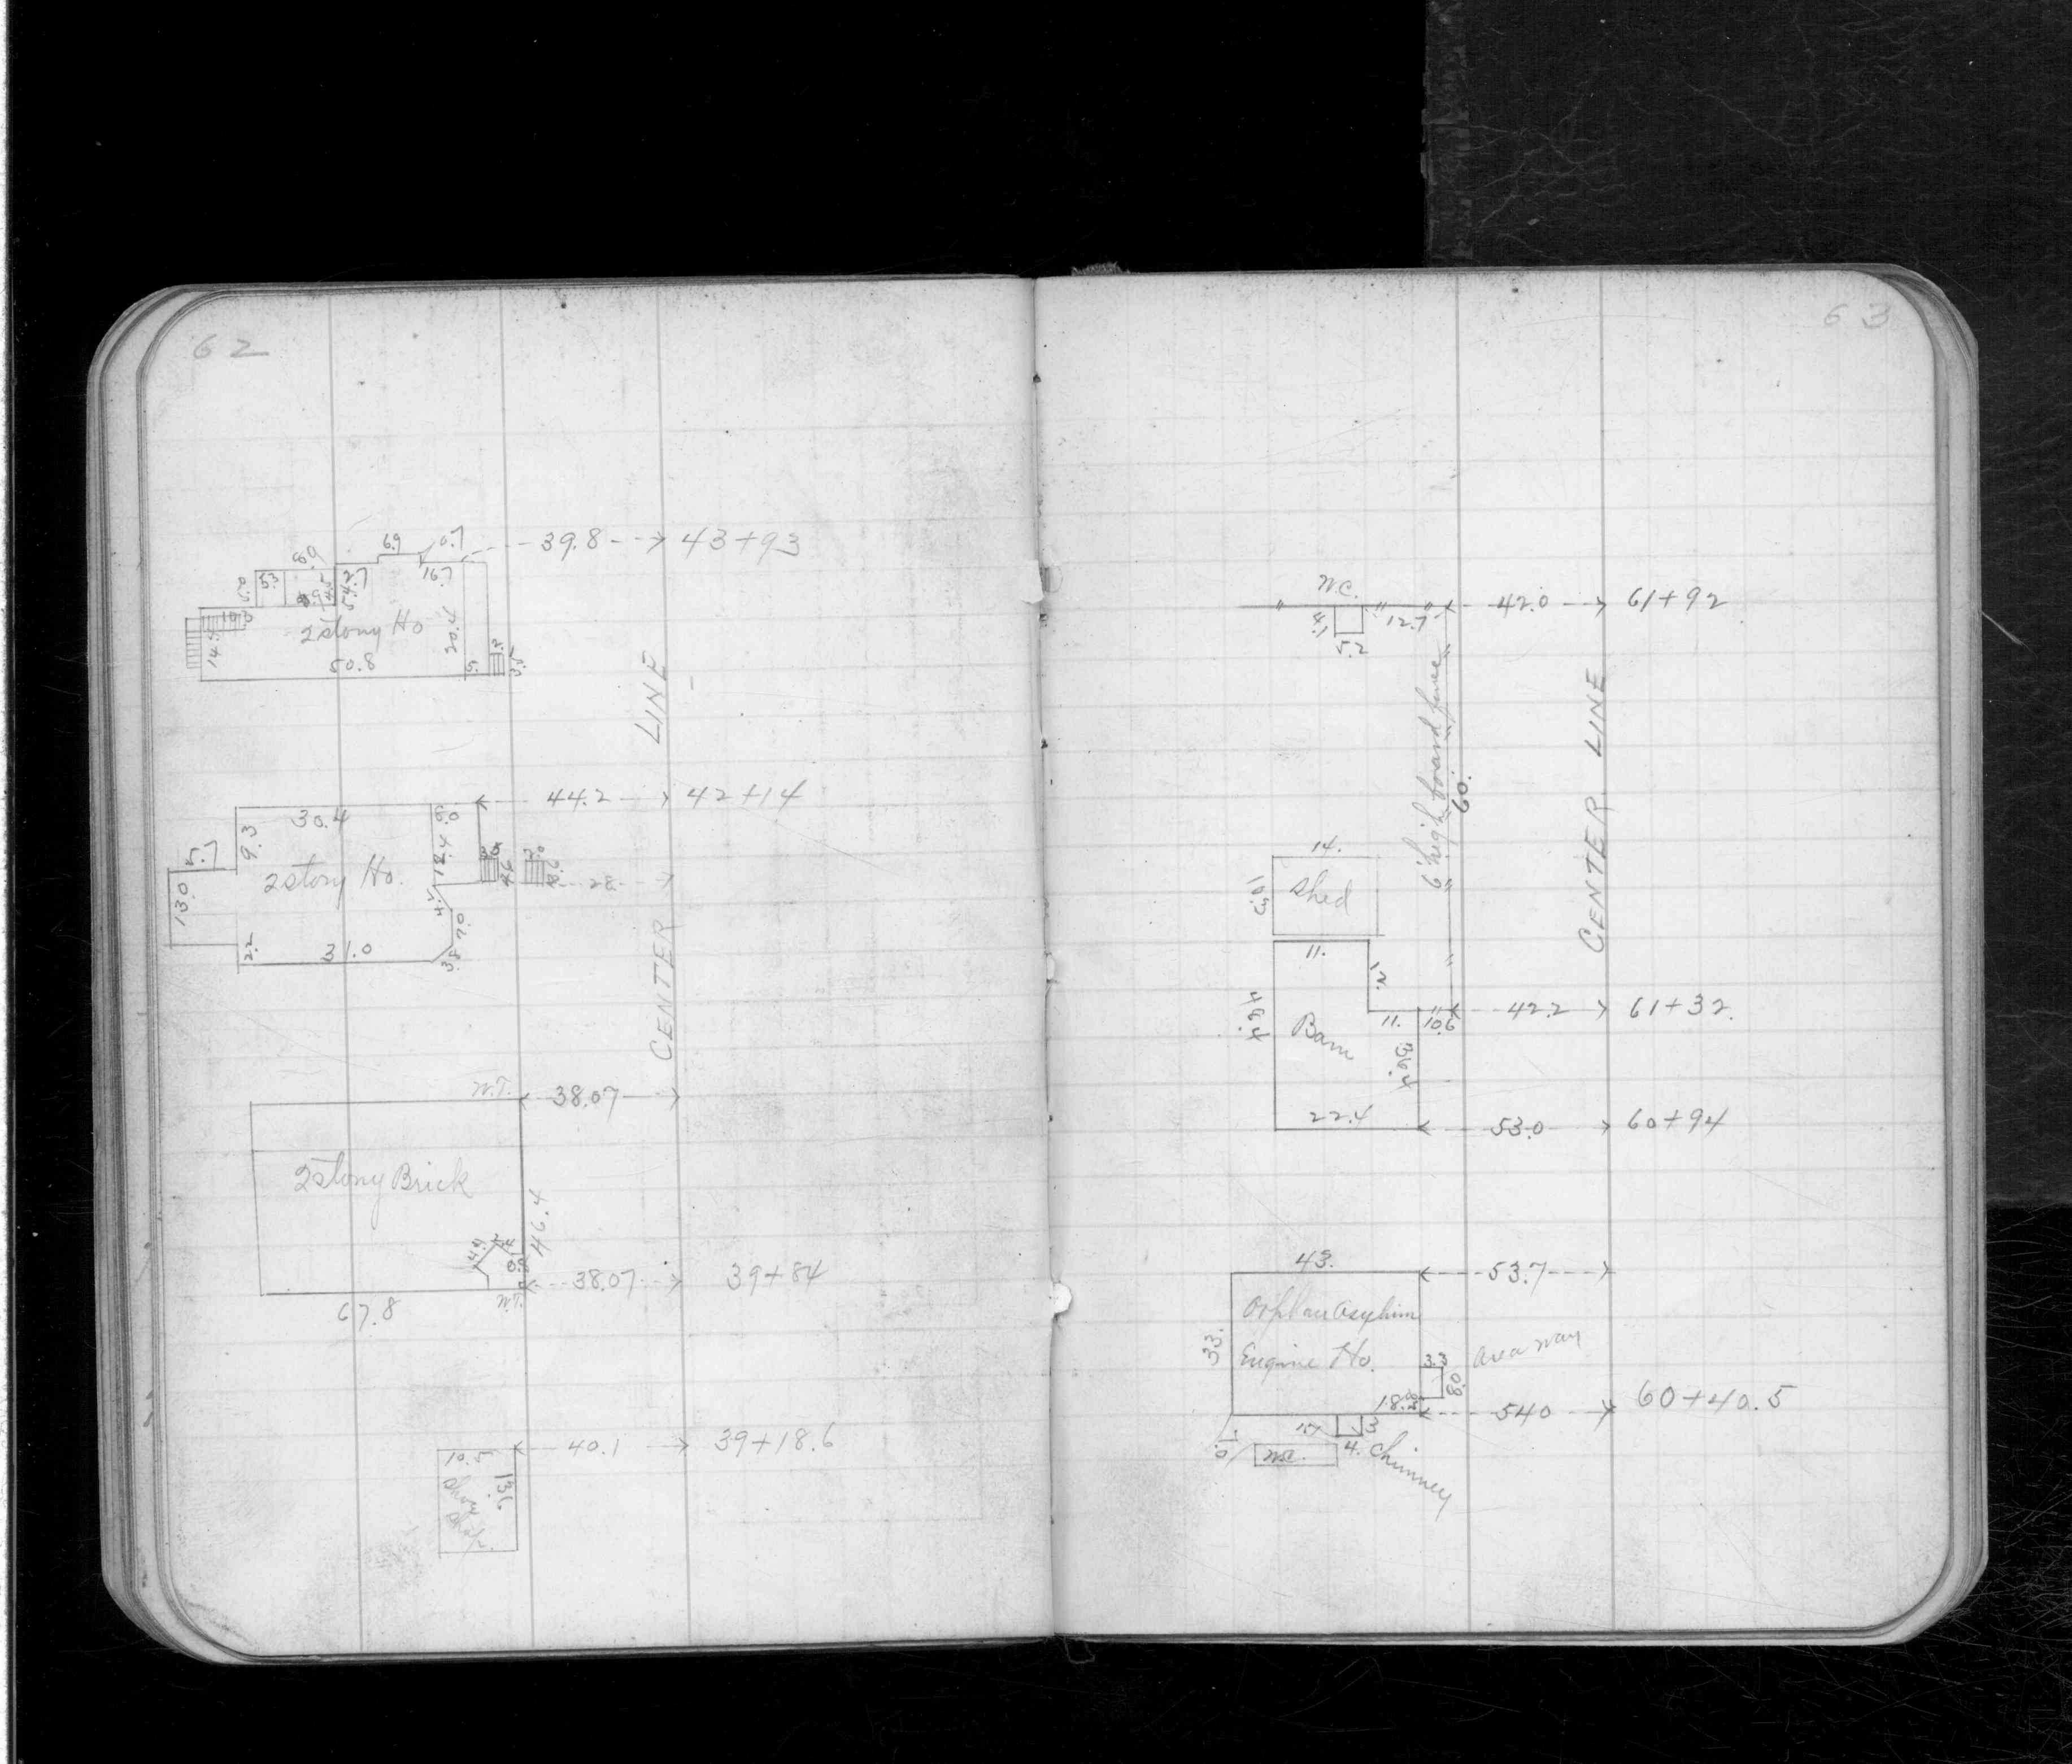 62
6.9
0.7
39.8
43+93
8.9
5.3
54.7
16.7
2 story Ho
20.7
14.5
50.8
LINE
44.2
42+14
30.4
6.0
9.3
5.7
2 story Ho.
18.4
28.
13.0
4.4
7.0
2.2
31.0
3.8
CENTER
W.T.
38.07
2 story Brick
46.4
4.9
38.07
39+84
W.T.
67.8
40.1
39+18.6
10.5
13.6
63
W.C.
42.0
61+92
12.7
5.2
6' high board fence
60.
CENTER LINE
14.
Shed
11.
Barn
11.
10.6
42.2
61+32.
22.4
53.0
60+94
43.
53.7
Orphan Asylum
Engine Ho.
33.
3.3
area way
80.
18.
54.0
60+40.5
3
4. Chimney
W.C.